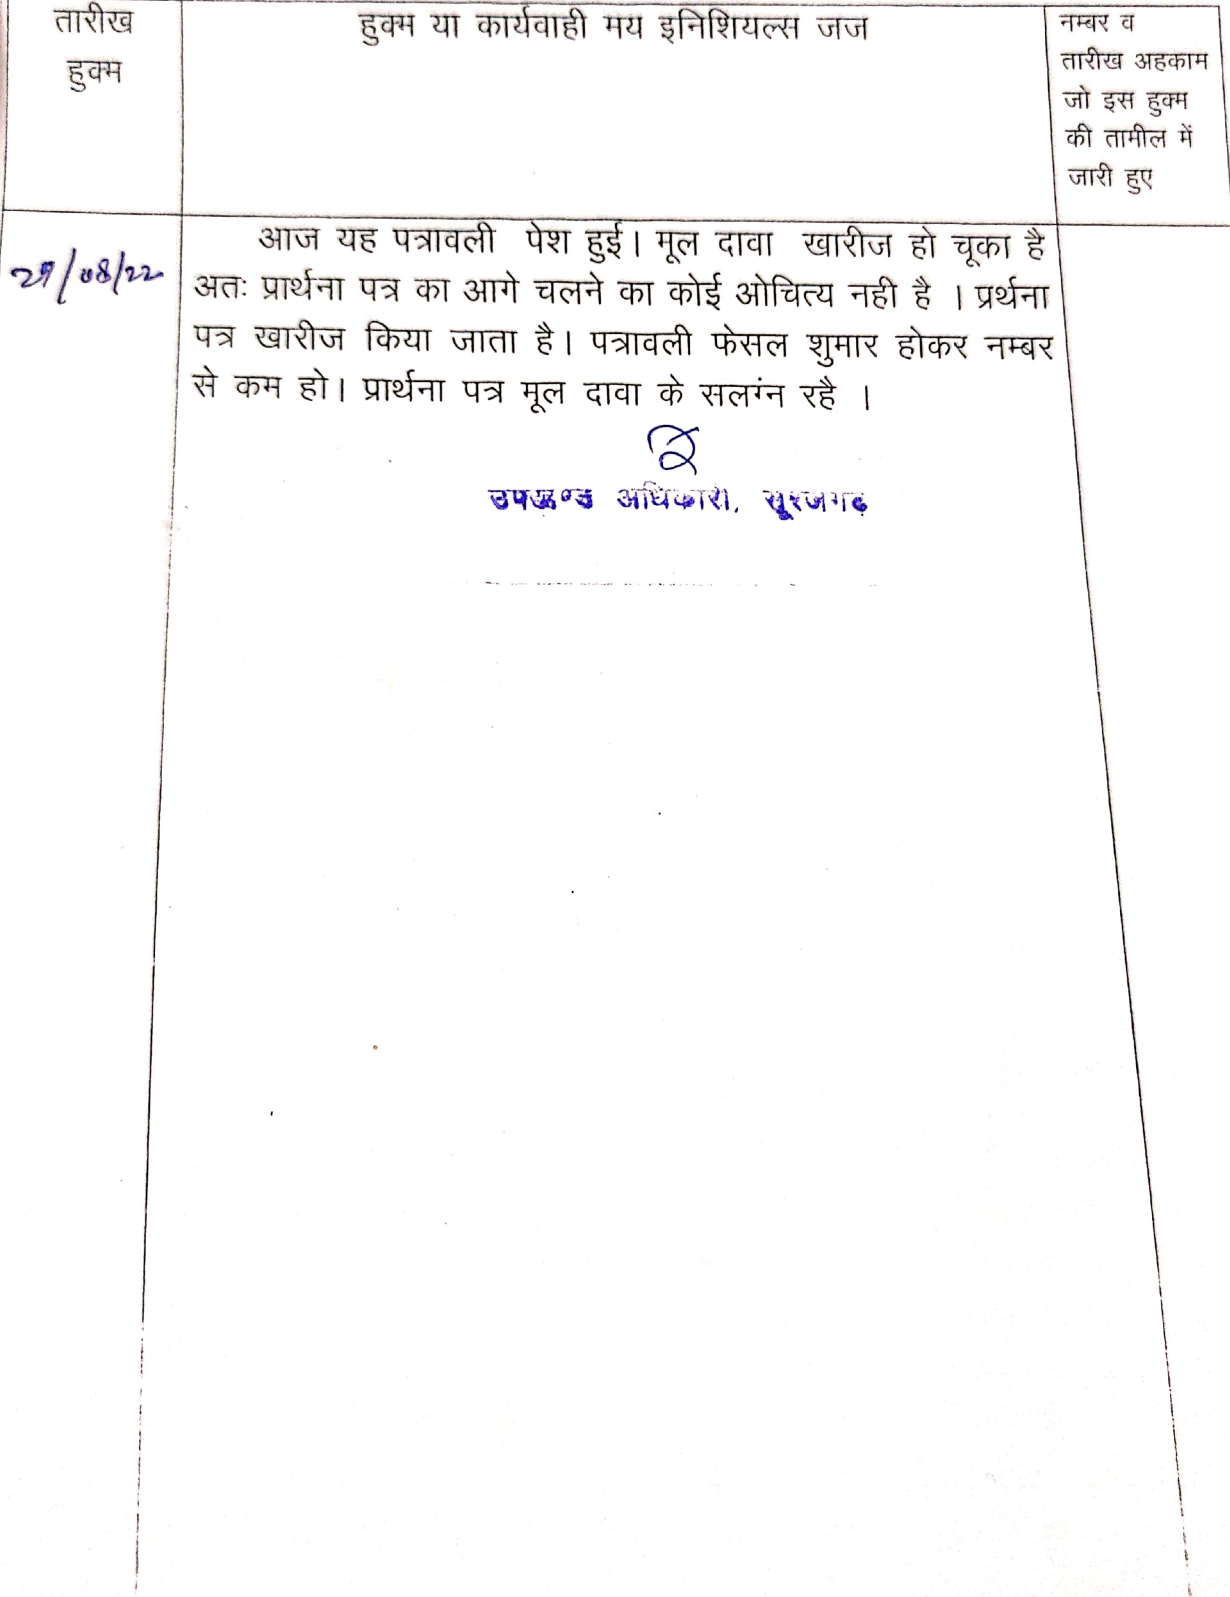 तारीख
हुक्म
हुक्म या कार्यवाही मय इनिशियल्स जज
नम्बर व
तारीख अहकाम
जो इस हुक्म
की तामील में
जारी हुए
29/08/22
आज यह पत्रावली पेश हुई। मूल दावा खारीज हो चूका है
अतः प्रार्थना पत्र का आगे चलने का कोई ओचित्य नही है । प्रर्थना
पत्र खारीज किया जाता है। पत्रावली फेसल शुमार होकर नम्बर
से कम हो। प्रार्थना पत्र मूल दावा के सलग्ंन रहै ।
उपखण्ड अधिकारी, सूरजगढ़